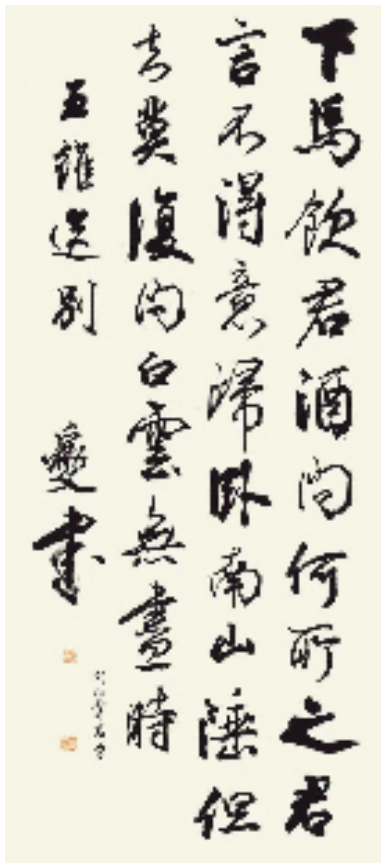 下馬飲君酒問何所之君
言不得意歸臥南山陲但
去莫復問白雲無盡時
王維送別 書